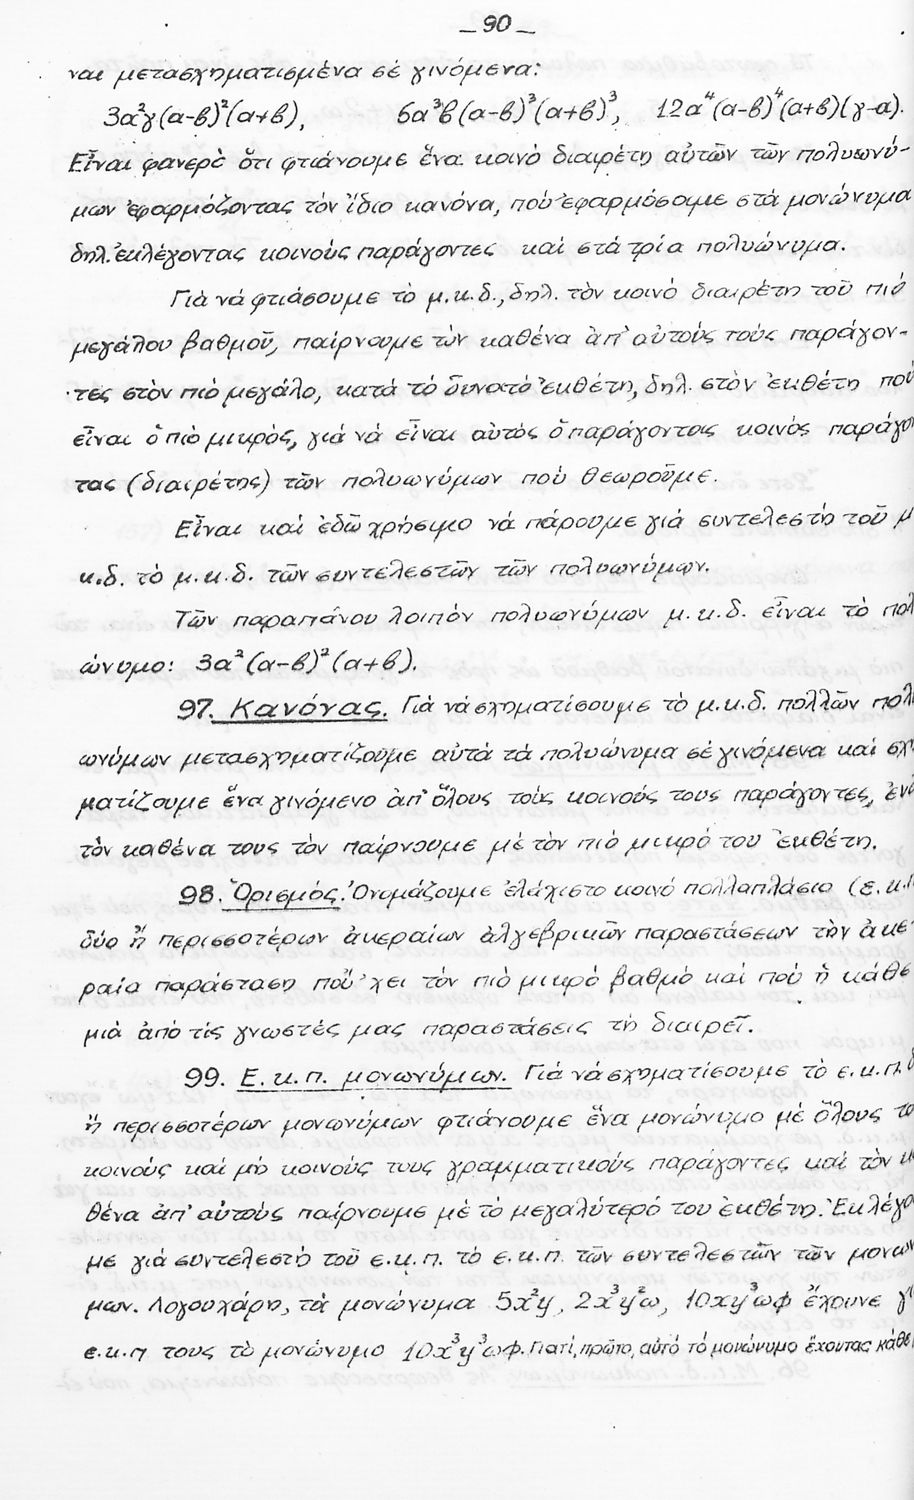 _ 90 _
ναι μετασχηματισμένα σέ γινόμενα:
3α²γ(α-β)²(α+β), 6α³β(α-β)³(α+β)³, 12α⁴(α-β)⁴(α+β)(γ-α).
Εἶναι φανερὸ ὅτι φτιάνουμε ἕνα κοινὸ διαιρέτη αὐτῶν τῶν πολυωνύ-
μων ἐφαρμόζοντας τὸν ἴδιο κανόνα, ποὺ ἐφαρμόσαμε στὰ μονώνυμα
δηλ. ἐκλέγοντας κοινοὺς παράγοντες καὶ στὰ τρία πολυώνυμα.
Γιὰ νά φτιάσουμε τὸ μ.κ.δ., δηλ. τὸν κοινὸ διαιρέτη τοῦ πιό
μεγάλου βαθμοῦ, παίρνουμε τὸν καθένα ἀπ' αὐτούς τούς παράγον-
τες στὸν πιὸ μεγάλο, κατά τό δυνατό ἐκθέτη, δηλ. στὸν ἐκθέτη πού
εἶναι ὁ πιὸ μικρὸς, γιά νά εἶναι αὐτὸς ὁ παράγοντας κοινὸς παράγο
τας (διαιρέτης) τῶν πολυωνύμων πού θεωροῦμε.
Εἶναι καί ἐδῶ χρήσιμο νά πάρουμε γιά συντελεστὴ τοῦ μ
κ.δ. τὸ μ.κ.δ. τῶν συντελεστῶν τῶν πολυωνύμων.
Τῶν παραπάνου λοιπὸν πολυωνύμων μ.κ.δ. εἶναι τὸ πολ
ώνυμο: 3α²(α-β)²(α+β).
97. Κανόνας. Γιὰ νὰ σχηματίσουμε τὸ μ.κ.δ. πολλῶν πολυ
ωνύμων μετασχηματίζουμε αὐτά τὰ πολυώνυμα σέ γινόμενα καί σχη
ματίζουμε ἕνα γινόμενο ἀπ' ὅλους τούς κοινούς τους παράγοντες, ἐνῶ
τὸν καθένα τους τὸν παίρνουμε μὲ τὸν πιὸ μικρό του ἐκθέτη.
98. Ὁρισμός. Ὀνομάζουμε ἐλάχιστο κοινό πολλαπλάσιο (ε.κ.π
δύο ἤ περισσοτέρων ἀκεραίων ἀλγεβρικῶν παραστάσεων τὴν ἀκε
ραία παράσταση πού 'χει τὸν πιὸ μικρὸ βαθμὸ καί πού ἡ κάθε
μιὰ ἀπὸ τὶς γνωστές μας παραστάσεις τὴ διαιρεῖ.
99. Ε.κ.π. μονωνύμων. Γιὰ νὰ σχηματίσουμε τὸ ε.κ.π. δ
ἤ περισσοτέρων μονωνύμων φτιάνουμε ἕνα μονώνυμο μὲ ὅλους το
κοινούς καί μὴ κοινούς τους γραμματικούς παράγοντες καί τὸν κα
θένα ἀπ' αὐτούς παίρνουμε μὲ τὸ μεγαλύτερό του ἐκθέτη. Ἐκλέγου
με γιά συντελεστὴ τοῦ ε.κ.π. τὸ ε.κ.π. τῶν συντελεστῶν τῶν μονων
μων. Λογουχάρη, τὰ μονώνυμα 5x²y, 2x³y²ω, 10xy³ωφ ἔχουνε γι
ε.κ.π τους τὸ μονώνυμο 10x³y³ωφ. Γιατί, πρῶτο, αὐτό τό μονώνυμο ἔχοντας κάθε